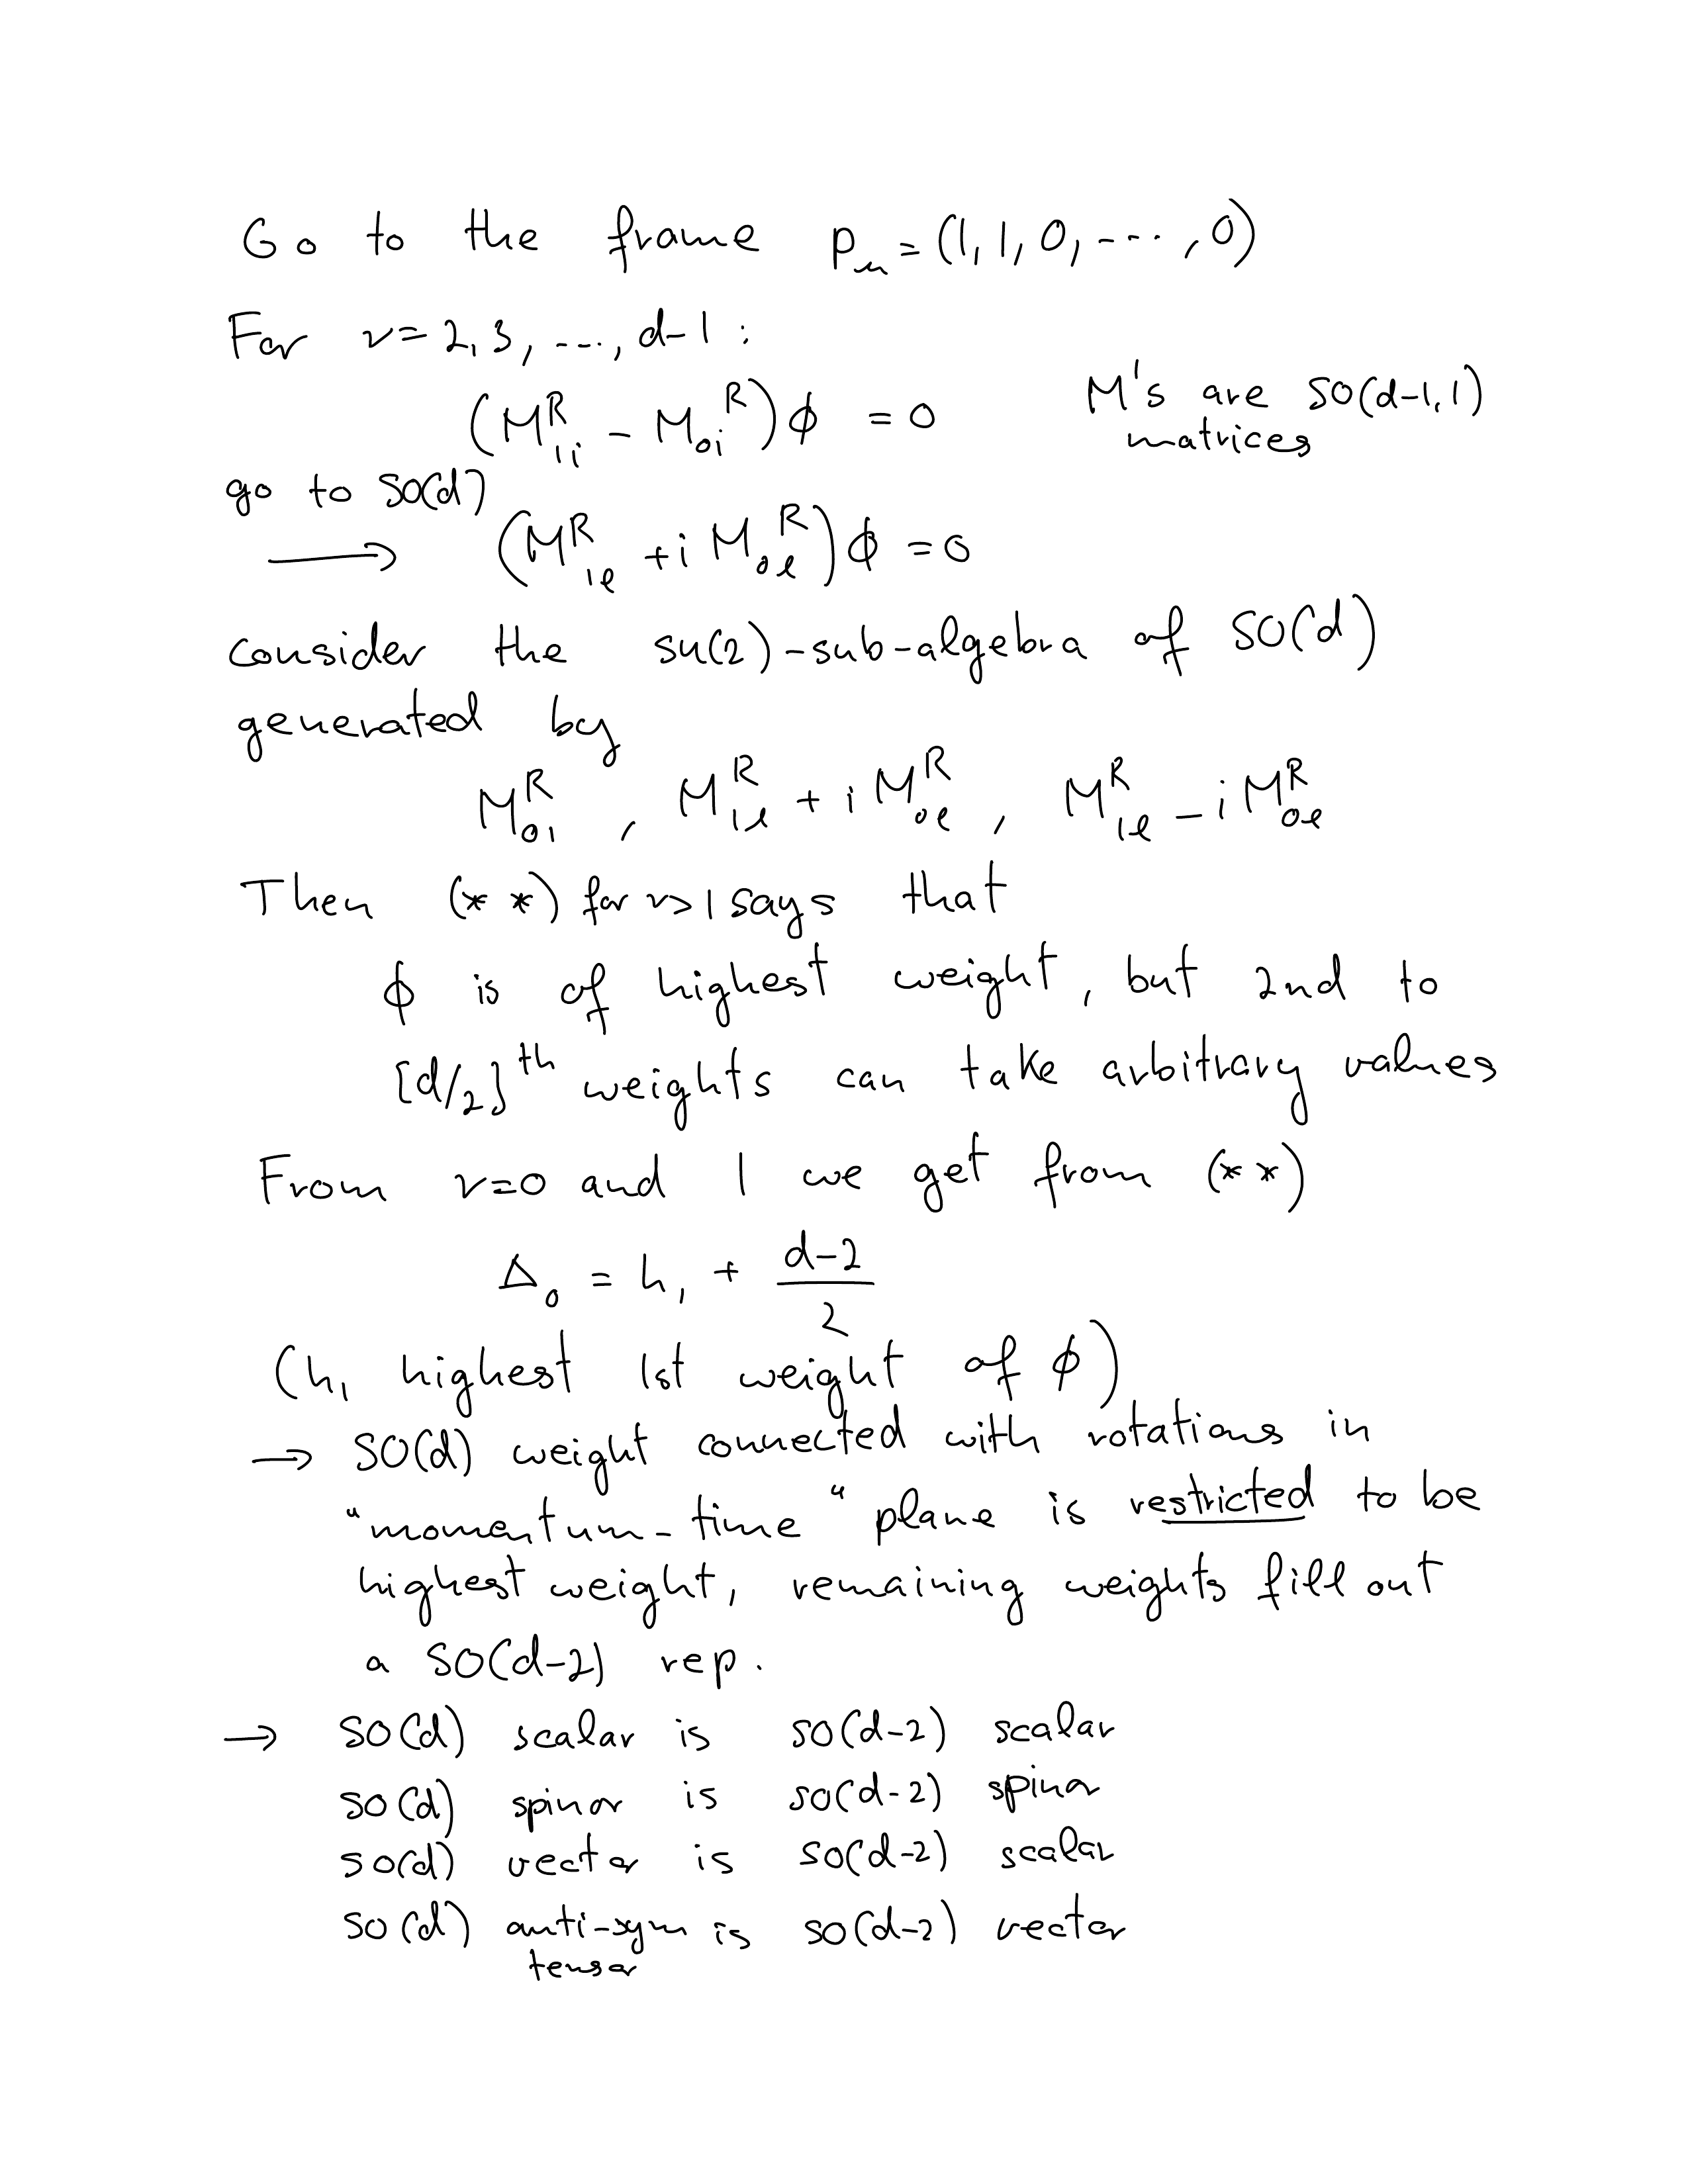 Go to the frame p_μ = (1, 1, 0, ---, 0)
For ν = 2, 3, ---, d-1 :
(M^R_{1i} - M_{0i}^R) ϕ = 0
M's are SO(d-1,1)
matrices
go to SO(d)
⟶ (M^R_{1l} + i M_{0l}^R) ϕ = 0
consider the su(2)-sub-algebra of SO(d)
generated by
M^R_{01} , M^R_{1l} + i M^R_{0l} , M^R_{1l} - i M^R_{0l}
Then (**) for ν>1 says that
ϕ is of highest weight, but 2nd to
[d/2]^{th} weights can take arbitrary values
From ν=0 and 1 we get from (**)
Δ_0 = h_1 + \frac{d-2}{2}
(h_1 highest 1st weight of ϕ)
→ SO(d) weight connected with rotations in
"momentum-time" plane is restricted to be
highest weight, remaining weights fill out
a SO(d-2) rep.
→ SO(d) scalar is SO(d-2) scalar
SO(d) spinor is SO(d-2) spinor
SO(d) vector is SO(d-2) scalar
SO(d) anti-sym is SO(d-2) vector
tensor